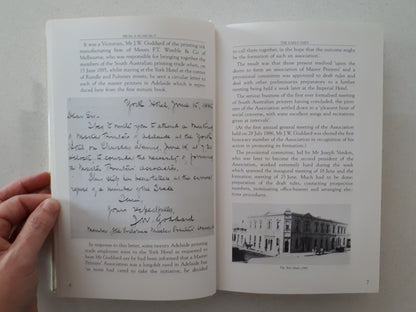 FROM A HUMP HUT
It was a Victorian, Mr J.W. Goddard of the printing ink
manufacturing firm of Messrs F.T. Wimble & Co. of
Melbourne, who was responsible for bringing together the
South Australian employers of the printing trade when, on
15 June 1885, whilst staying at the York Hotel at the corner
of Rundle and Pulteney streets, he sent a circular letter to
each of the master printers in Adelaide which is repro-
duced here.
York Hotel, June 15, 1885
Dear Sir,
I beg to invite you to attend a meeting
of Master Printers of Adelaide at the York
Hotel on Thursday evening, June 18 at 7.30
o'clock to consider the necessity of forming
a Master Printers Association.
Yours respectfully
J.W. Goddard
In response to this letter, some twenty Adelaide printing
trade employers went to the York Hotel on the evening.
Mr Goddard say he had been informed that a Master
Printers' Association was a longfelt need in Adelaide but
as no one had cared to take the initiative, he decided
6
THE EARLY DAYS
to call them together, in the hope that the outcome might
be the formation of such an association.
The result was that those present resolved 'upon the
desire to form an Association of Master Printers' and a
provisional committee was appointed to draft rules and
deal with other preliminaries preparatory to a further
meeting being held a week later at the Imperial Hotel.
The serious business of the first ever formalised meeting
of South Australian printers having concluded, the joint
members of the Settlement carried on to a 'pleasant hour of
social converse, with some excellent songs and recitations
given at intervals'.
(At the first annual general meeting of the Association
held on 29 July 1886, Mr J.W. Goddard was elected the first
honorary member of the Association in recognition of
his action in promoting its formation.)
The provisional committee, led by Mr Joseph Vardon,
who was later to become the second president of the
Association, worked extremely hard during the week
which spanned the inaugural meeting of 18 June and the
formation meeting of 25 June. Much had to be done in
preparation of the draft rules, contacting prospective
members, nominating office-bearers and arranging elec-
tions procedures.
7